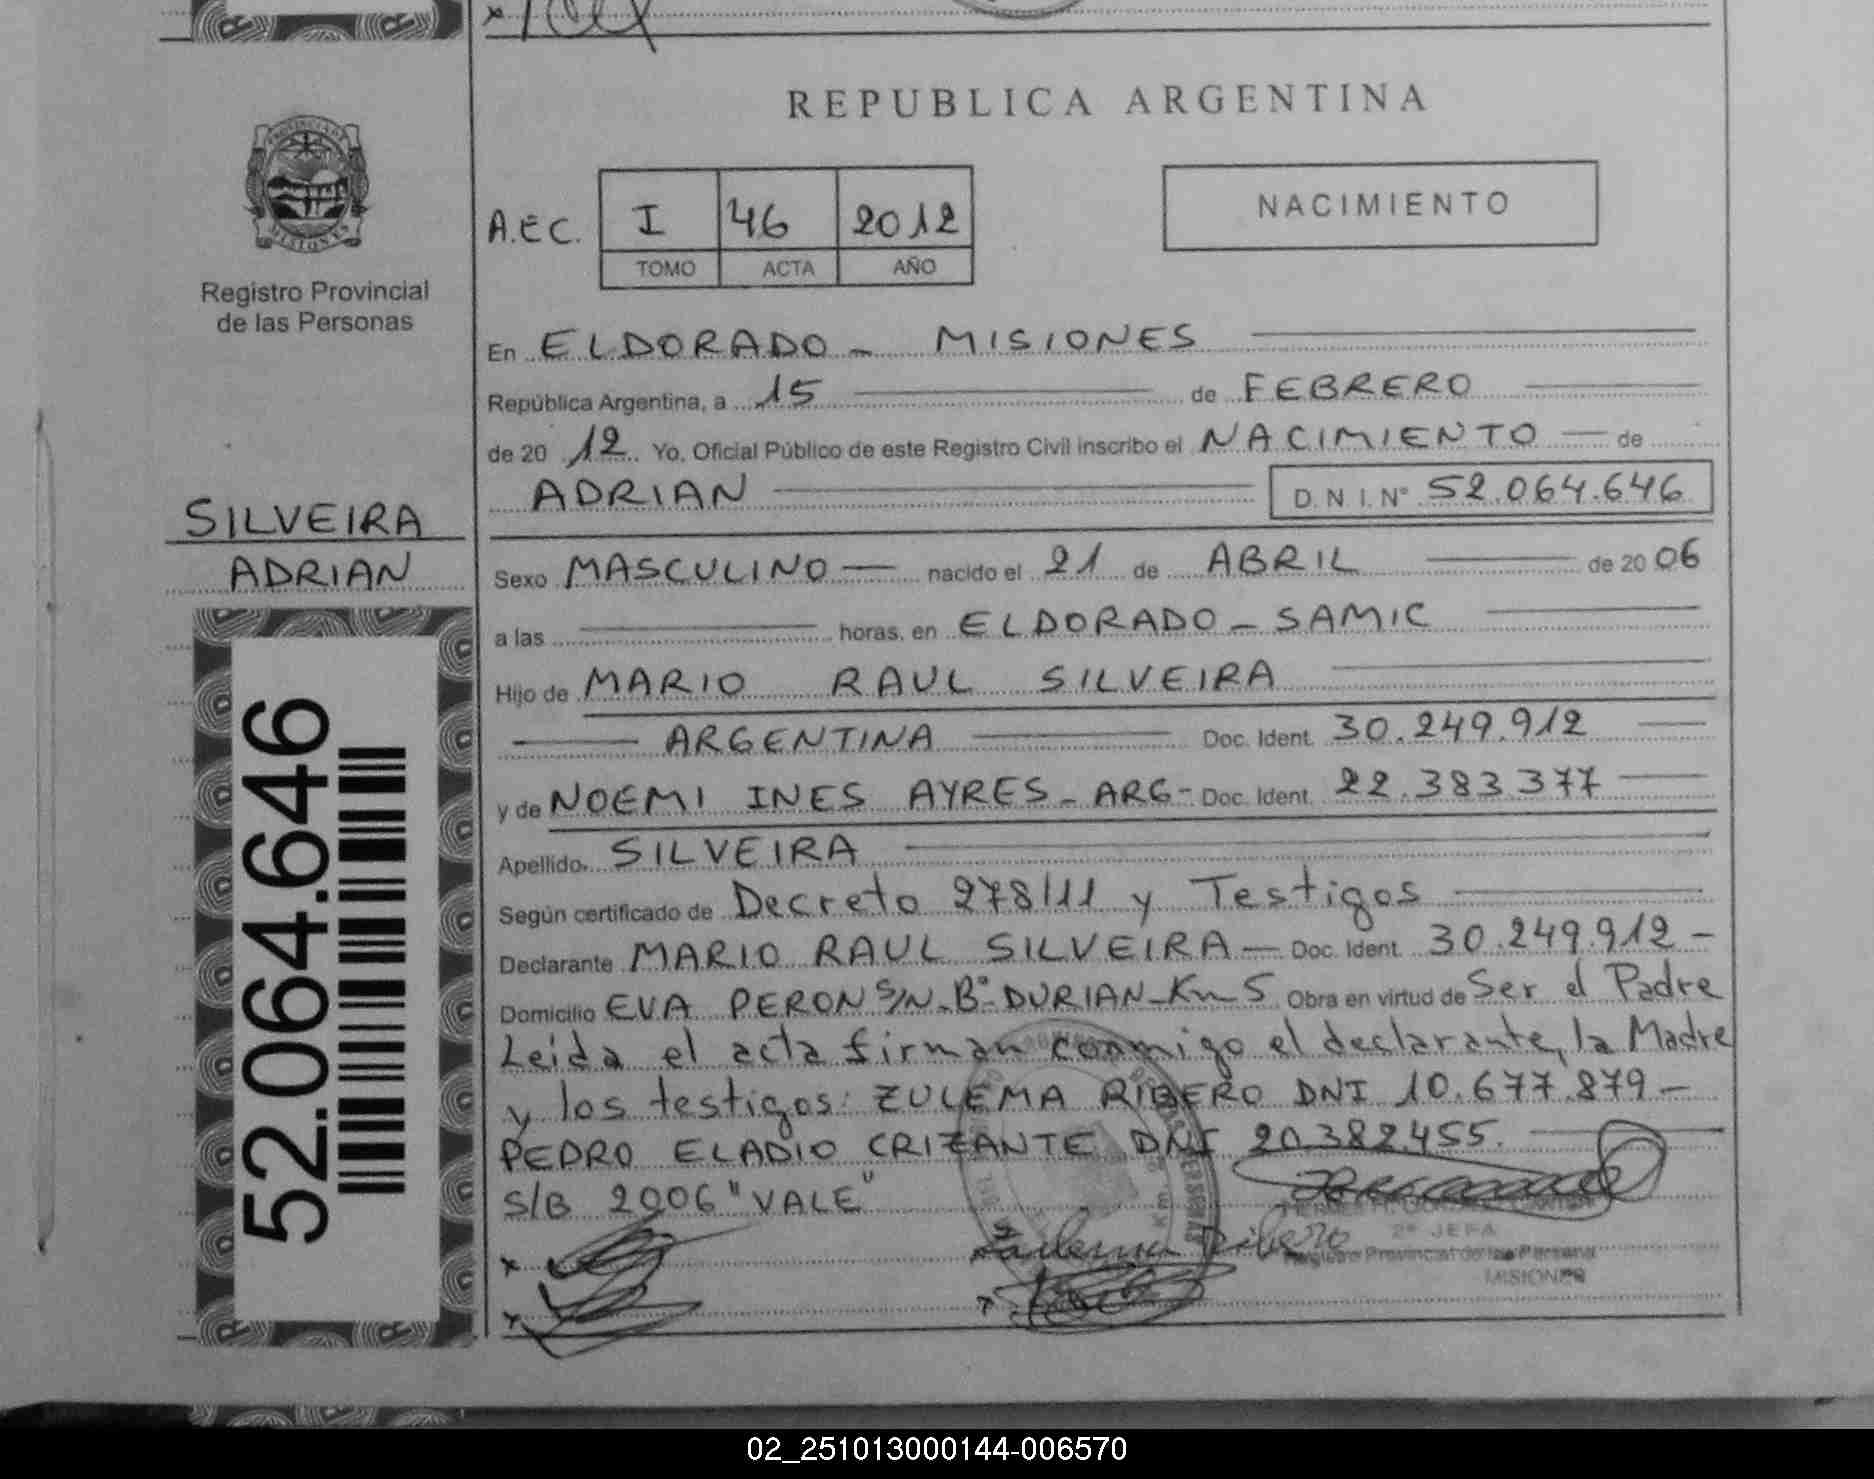 REPUBLICA ARGENTINA
PROVINCIA DE MISIONES
Registro Provincial
de las Personas
A.E.C. I 46 2012
TOMO ACTA AÑO
NACIMIENTO
En ELDORADO - MISIONES
República Argentina, a 15 de FEBRERO
de 20 12 Yo, Oficial Público de este Registro Civil inscribo el NACIMIENTO de
ADRIAN D.N.I. Nº 52.064.646
SILVEIRA
ADRIAN
52.064.646
Sexo MASCULINO nacido el 21 de ABRIL de 20 06
a las horas, en ELDORADO - SAMIC
Hijo de MARIO RAUL SILVEIRA
ARGENTINA Doc. Ident. 30.249.912
y de NOEMI INES AYRES - ARG- Doc. Ident. 22.383.377
Apellido SILVEIRA
Según certificado de Decreto 278/11 y Testigos
Declarante MARIO RAUL SILVEIRA - Doc. Ident. 30.249.912 -
Domicilio EVA PERON S/N - Bº DURIAN - Km 5 Obra en virtud de Ser el Padre
Leida el acta firman conmigo el declarante, la Madre
y los testigos: ZULEMA RIBERO DNI 10.677.879 -
PEDRO ELADIO CRIZANTE DNI 20.382.455.
S/B 2006 "VALE"
Zulema Ribero
2º JEFA
Registro Provincial de las Personas
MISIONES
02_251013000144-006570